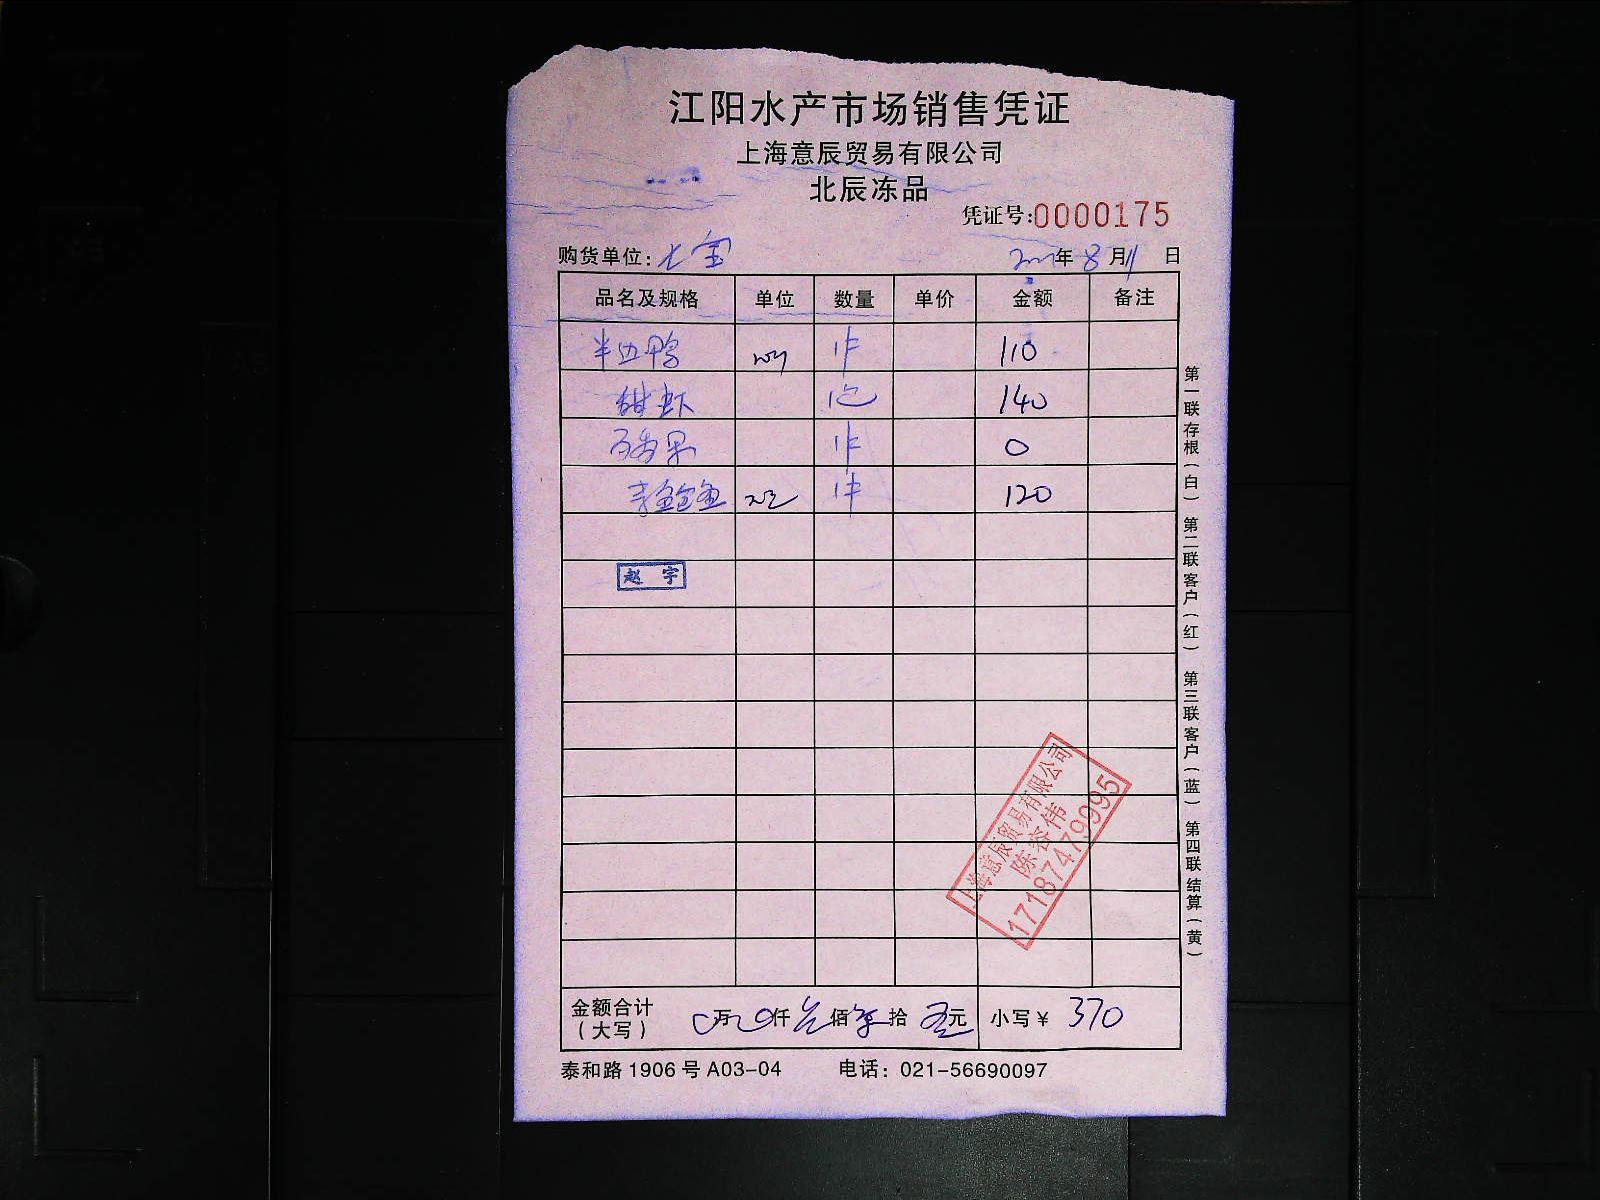 江阳水产市场销售凭证
上海意辰贸易有限公司
北辰冻品
凭证号:0000175
购货单位: 年8月11日
品名及规格 单位 数量 单价 金额 备注
半边鸭 1件 110
甜虾 1包 140
百香果 1件 0
1件 120
赵宇
上海意辰贸易有限公司
陈容伟
17187479995
金额合计(大写) 万 仟 佰 拾 元 小写¥ 370
泰和路1906号A03-04 电话:021-56690097
第一联存根(白) 第二联客户(红) 第三联客户(蓝) 第四联结算(黄)